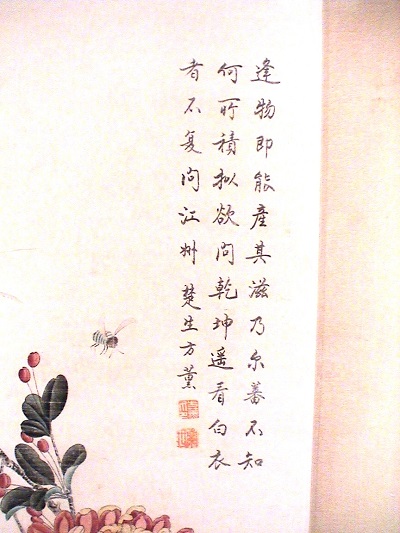 逢物即能產其滋乃尔蕃不知
何所積拟欲问乾坤遥看白衣
者不复问江州楚生方薰